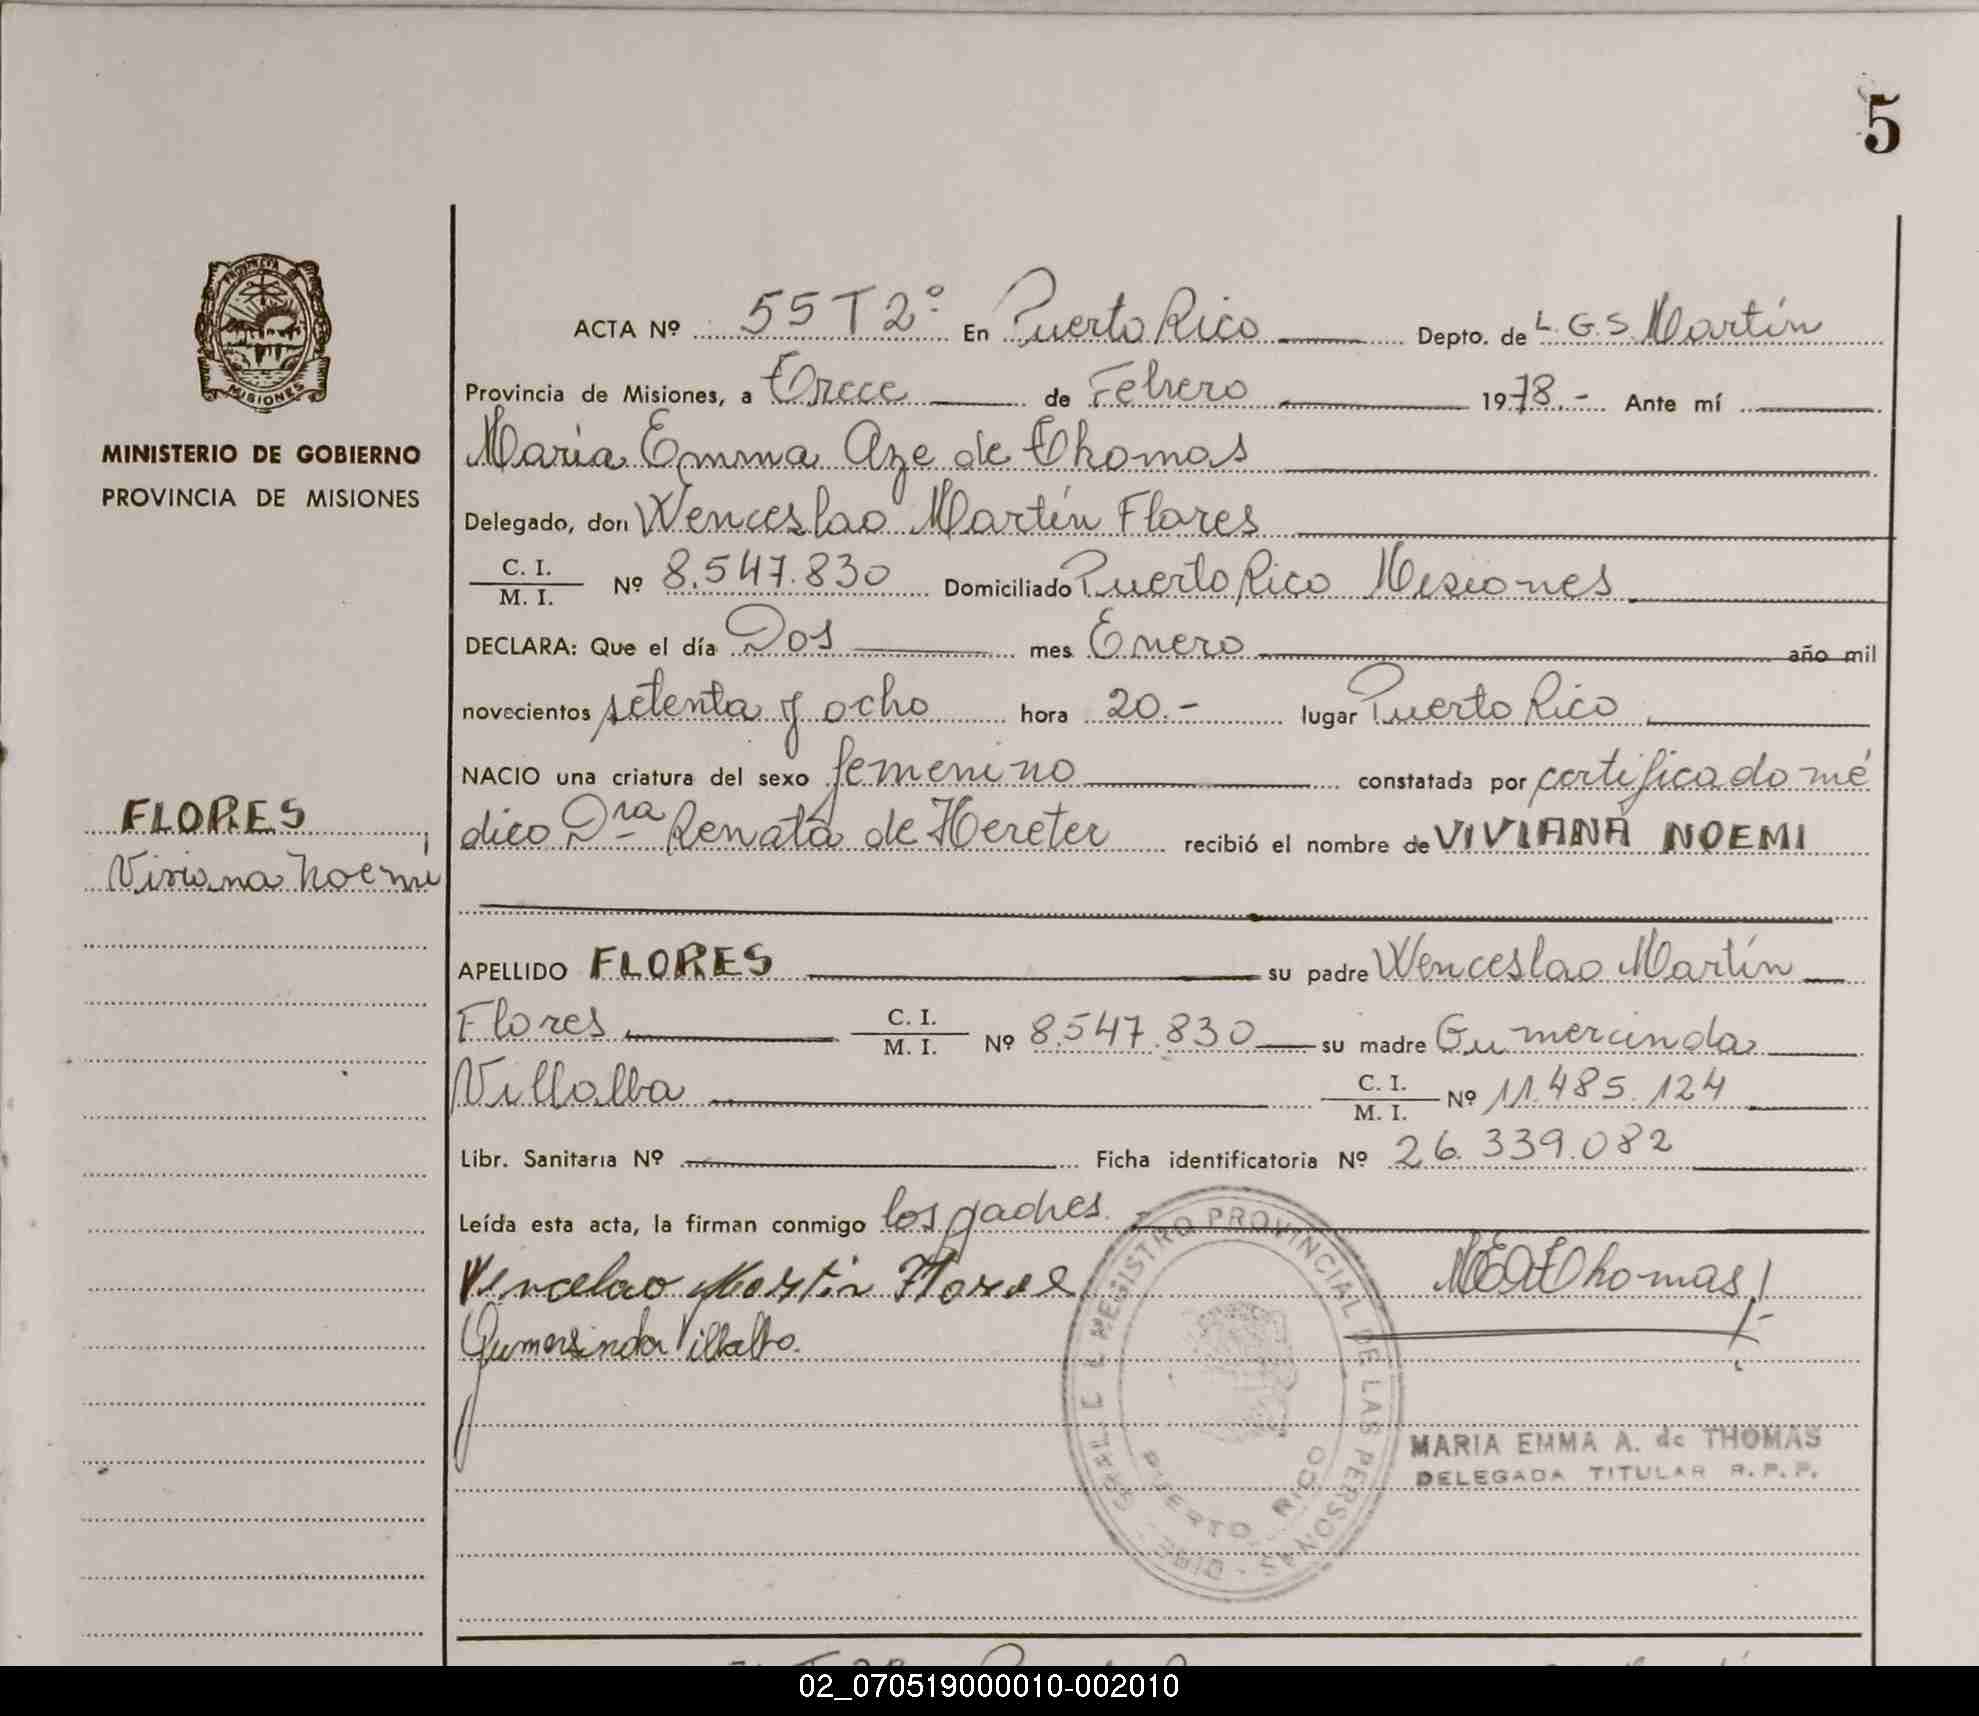 5
PROVINCIA DE
MISIONES
MINISTERIO DE GOBIERNO
PROVINCIA DE MISIONES
FLORES
Viviana Noemí
ACTA Nº 55 T 2º En Puerto Rico Depto. de L. G. S. Martín
Provincia de Misiones, a Trece de Febrero 1978.- Ante mí
Maria Emma Aze de Thomas
Delegado, don Wenceslao Martín Flores
C. I.
M. I. Nº 8.547.830 Domiciliado Puerto Rico Misiones
DECLARA: Que el día Dos mes Enero año mil
novecientos setenta y ocho hora 20.- lugar Puerto Rico
NACIO una criatura del sexo femenino constatada por certificado mé
dico Dra Renata de Hereter recibió el nombre de VIVIANA NOEMI
APELLIDO FLORES su padre Wenceslao Martín
Flores C. I. M. I. Nº 8.547.830 su madre Gumercinda
Villalba C. I. M. I. Nº 11.485.124
Libr. Sanitaria Nº Ficha identificatoria Nº 26.339.082
Leída esta acta, la firman conmigo los padres.
Wencelao Martin Flores MEAThomas
Gumersinda Villalba.
REGISTRO PROVINCIAL DE LAS PERSONAS
PUERTO RICO
MARIA EMMA A. de THOMAS
DELEGADA TITULAR R. P. P.
02_070519000010-002010